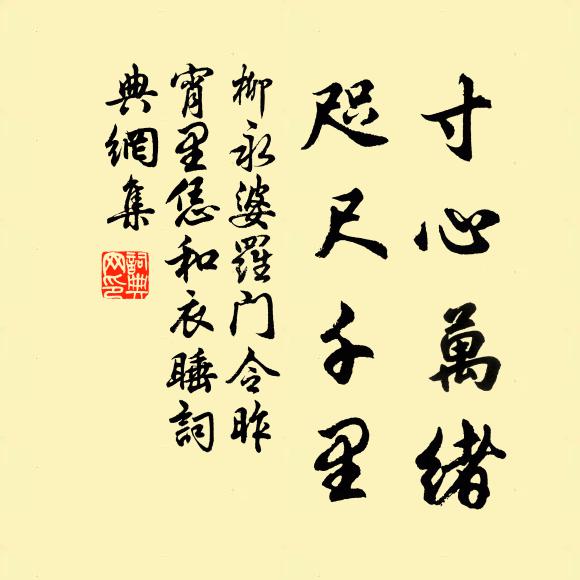 寸心萬緒
咫尺千里
柳永婆羅门令昨
宵里恁和衣睡詞
典網集
詞典
网印